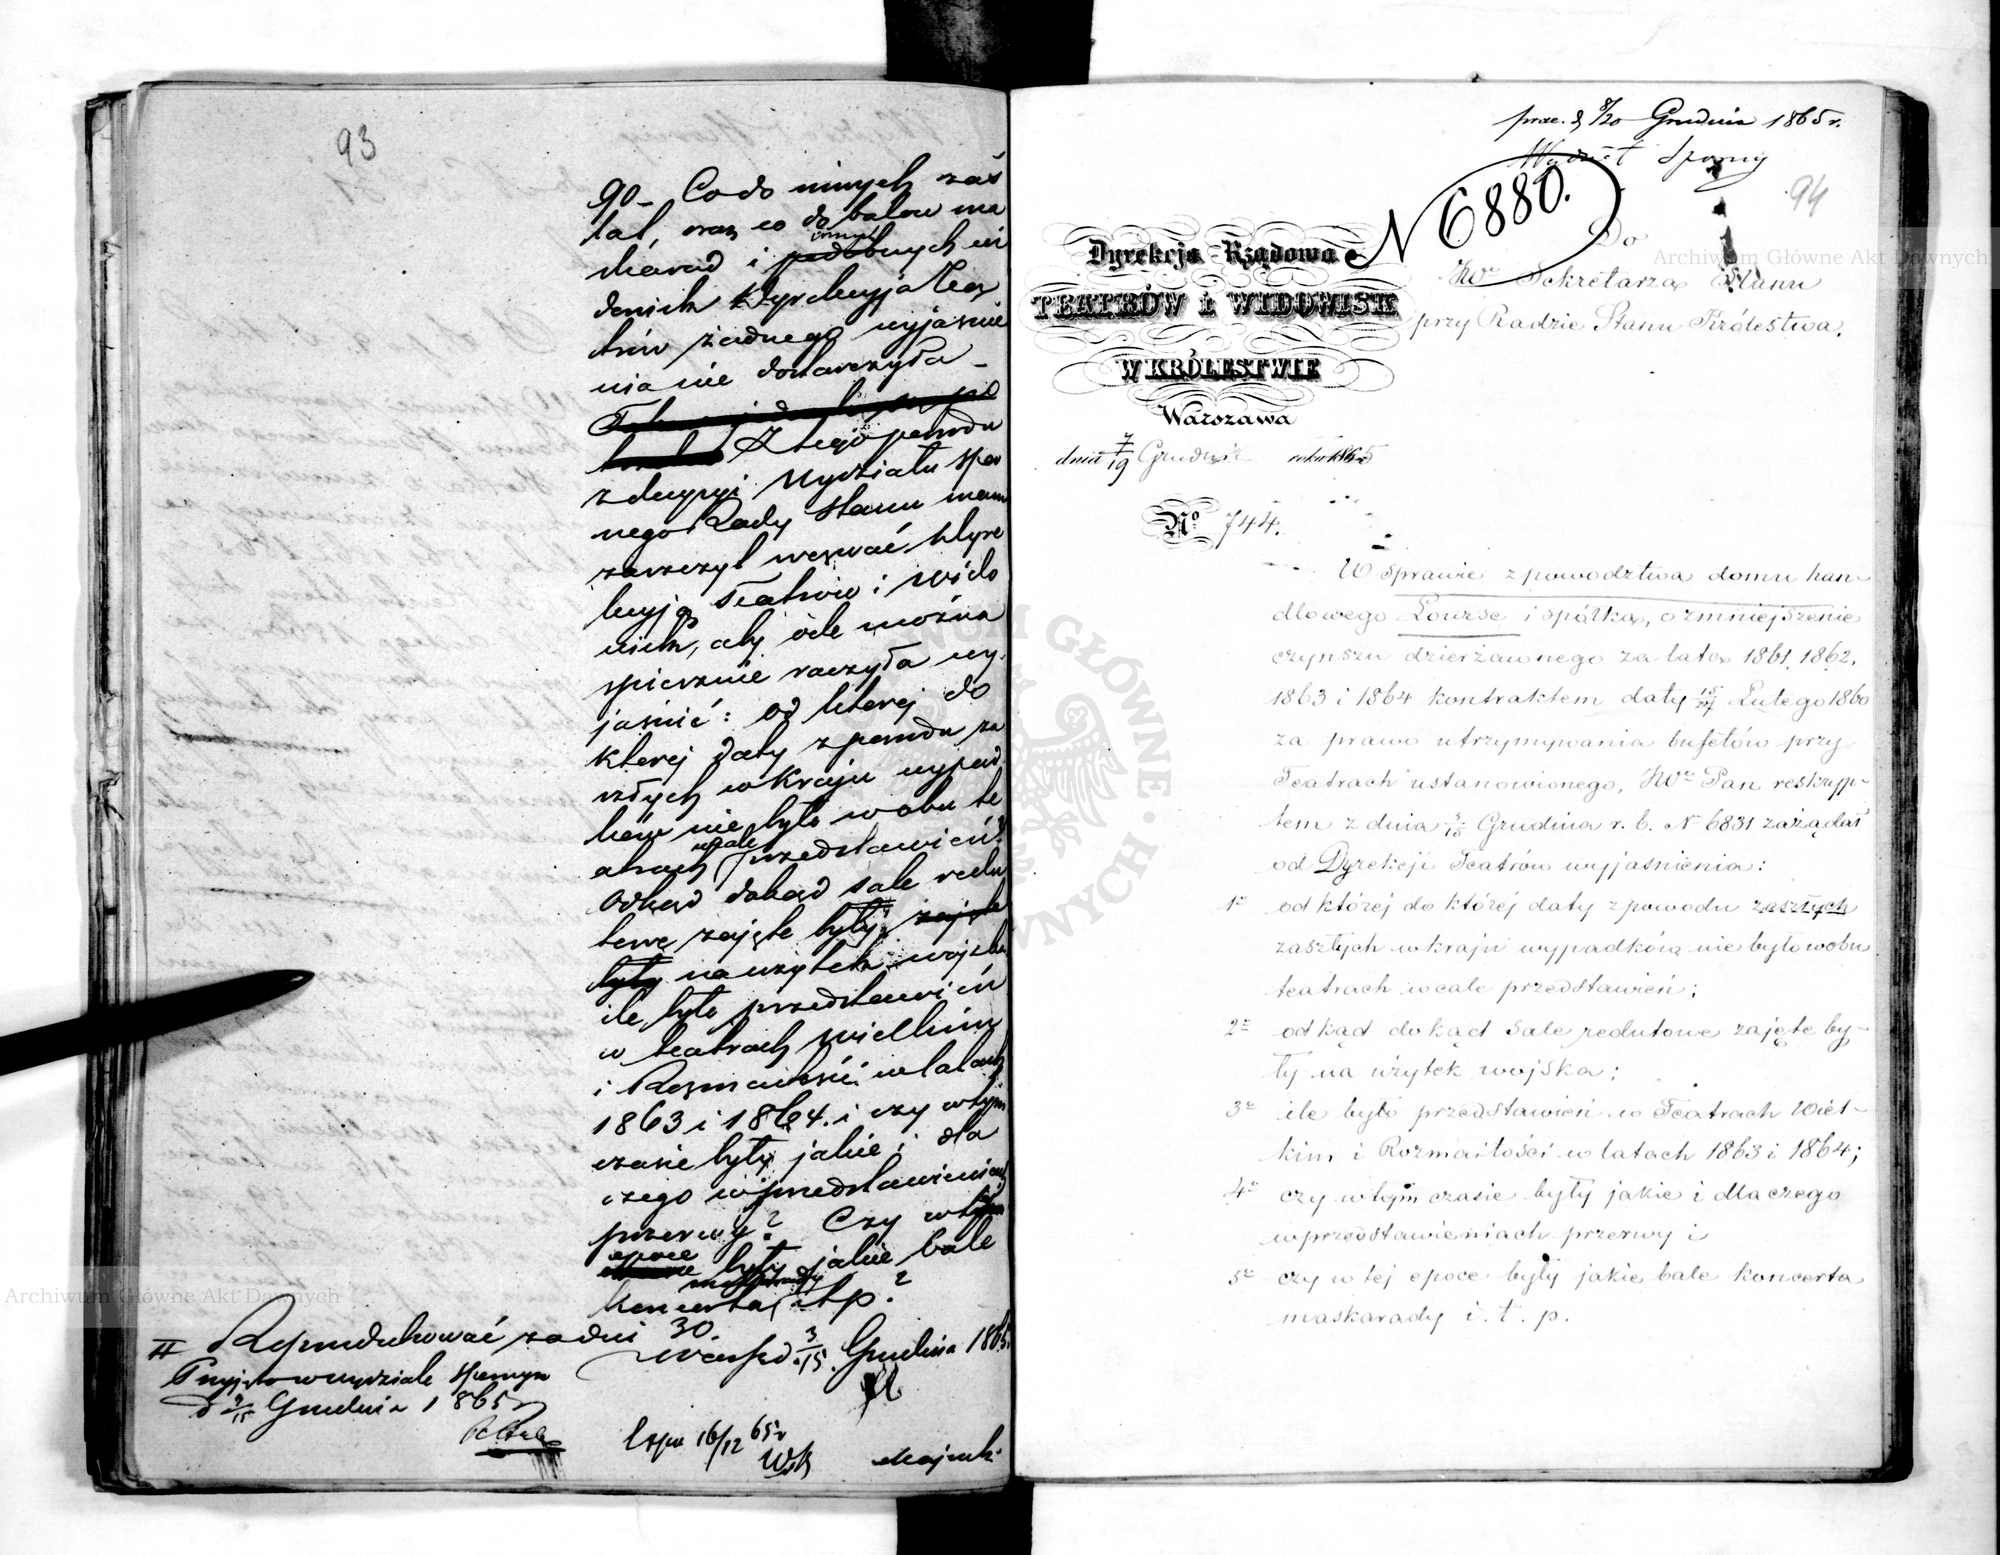 93
90 – Co do innych zaś
lat, oraz co do balów ma
skarad i innych podobnych wi
dowisk Dyrekcyja Tea
trów żadnego wyjaśnie
nia nie dostarczyła –
Z tego powodu
z decyzyi Wydziału Spor
nego Rady Stanu mam
zaszczyt wezwać Dyre
kcyją Teatrów i wido
wisk, aby ile można
spiesznie raczyła wy
jaśnić: od której do
której daty z powodu za
szłych w kraju wypad
ków nie było w obu te
atrach wcale przedstawień?
Odkąd dokąd sale redu
towe zajęte były zajęte
były na użytek wojska
ile było przedstawień
w teatrach wielkim
i Rozmaitości w latach
1863 i 1864. i czy w tym
czasie były jakie i dla
czego w przedstawieniach
przerwy? Czy w tej
epoce były jakie bale
koncerta, maskarady itp.?
Reprodukować za dni 30.
Warsz d. 3/15 Grudnia 1865
Przyjęto w wydziale spornym
d 3/15 Grudnia 1865 r
Exp 16/12 65 r
prze. d 8/20 Grudnia 1865 r.
Wydział Sporny
N 6880.
94
Do
JWo Sekretarza Stanu
przy Radzie Stanu Królestwa.
Dyrekcja Rządowa
TEATRÓW i WIDOWISK
W KRÓLESTWIE
Warszawa
dnia 7/19 Grudnia roku 1865
No 744.
W sprawie z powodztwa domu han-
dlowego Lourse i spółka, o zmniejszenie
czynszu dzierżawnego za lata 1861, 1862,
1863 i 1864 kontraktem daty 15/27 Lutego 1860
za prawo utrzymywania bufetów przy
Teatrach ustanowionego, JWo Pan reskryp-
tem z dnia 3/15 Grudnia r. b. N 6831 zażądał
od Dyrekcji Teatrów wyjaśnienia:
1o od której do której daty z powodu zaszłych
zaszłych w kraju wypadków nie było w obu
teatrach wcale przedstawień;
2o od kąd do kąd Sale redutowe zajęte by-
ły na użytek wojska;
3o ile było przedstawień w Teatrach Wiel-
kim i Rozmaitości w latach 1863 i 1864;
4o czy w tym czasie były jakie i dlaczego
w przedstawieniach przerwy i
5o czy w tej epoce były jakie bale koncerta
maskarady i. t. p.
Archiwum Główne Akt Dawnych
Archiwum Główne Akt Dawnych